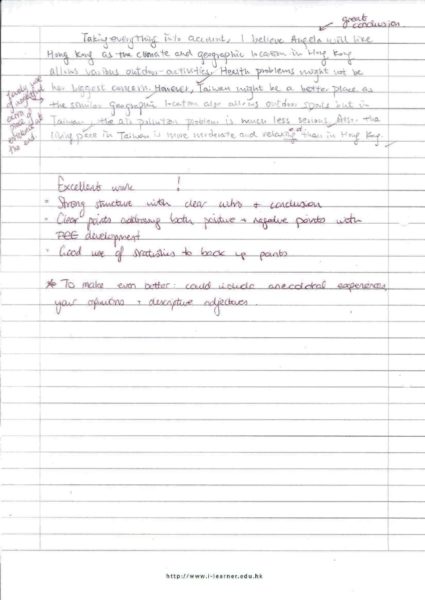 great conclusion.
Taking everything into account, I believe Angela will like
Hong Kong as the climate and geographic location in Hong Kong
allows various outdoor activities. Health problems might not be
her biggest concern. However, Taiwan might be a better place as
the similar geographic location also allows outdoor space but in
Taiwan, the air pollution problem is much less serious. Also, the
living pace in Taiwan is more moderate and relaxing than in Hong Kong.
lovely use of
place at
the end.
Excellent work !
• Strong structure with clear intro + conclusion
• Clear points addressing both positive + negative points with
development
• Good use of statistics to back up points
* To make even better: could include anecdotal experiences,
your opinions + descriptive adjectives.
http://www.i-learner.edu.hk